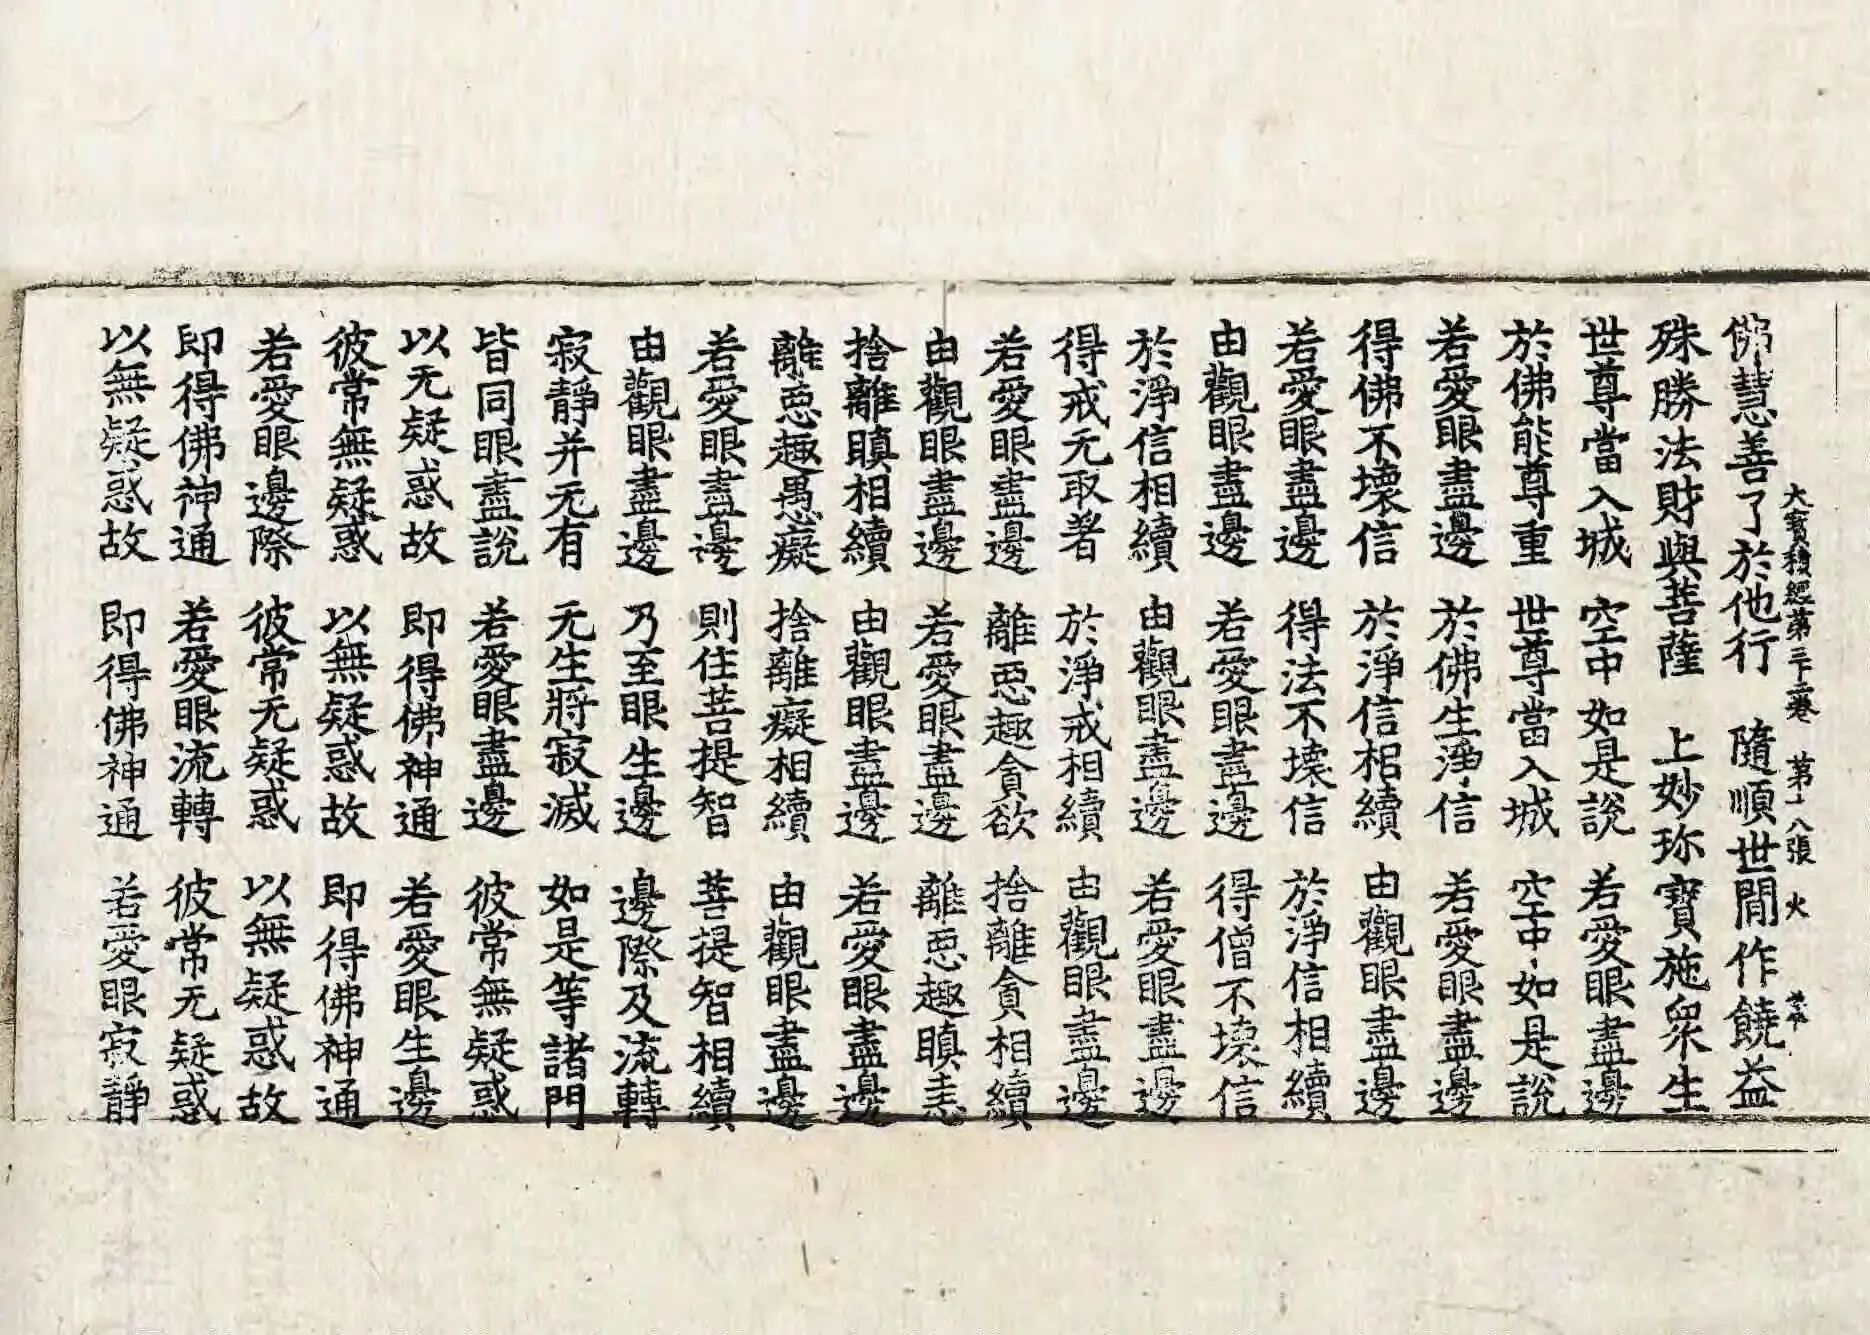 大寶積經第三十三卷 第十八張 火
佛慧善了於他行 隨順世間作饒益
殊勝法財與菩薩 上妙珎寶施衆生
世尊當入城 空中如是說 若愛眼盡邊
於佛能尊重 世尊當入城 空中如是說
若愛眼盡邊 於佛生淨信 若愛眼盡邊
得佛不壞信 於淨信相續 由觀眼盡邊
若愛眼盡邊 得法不壞信 於淨信相續
由觀眼盡邊 若愛眼盡邊 得僧不壞信
於淨信相續 由觀眼盡邊 若愛眼盡邊
得戒无取著 於淨戒相續 由觀眼盡邊
若愛眼盡邊 離惡趣貪欲 捨離貪相續
由觀眼盡邊 若愛眼盡邊 離惡趣瞋恚
捨離瞋相續 由觀眼盡邊 若愛眼盡邊
離惡趣愚癡 捨離癡相續 由觀眼盡邊
若愛眼盡邊 則住菩提智 菩提智相續
由觀眼盡邊 乃至眼生邊 邊際及流轉
寂靜并无有 无生將寂滅 如是等諸門
皆同眼盡說 若愛眼盡邊 彼常無疑惑
以无疑惑故 即得佛神通 若愛眼生邊
彼常無疑惑 以無疑惑故 即得佛神通
若愛眼邊際 彼常无疑惑 以無疑惑故
即得佛神通 若愛眼流轉 彼常无疑惑
以無疑惑故 即得佛神通 若愛眼寂靜